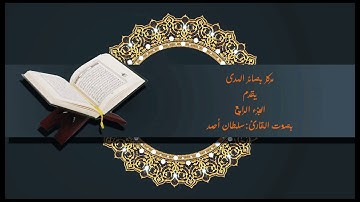 مركز بصائر الهدى
يقدم
الجزء الرابع
بصوت القارئ: سلطان أحمد